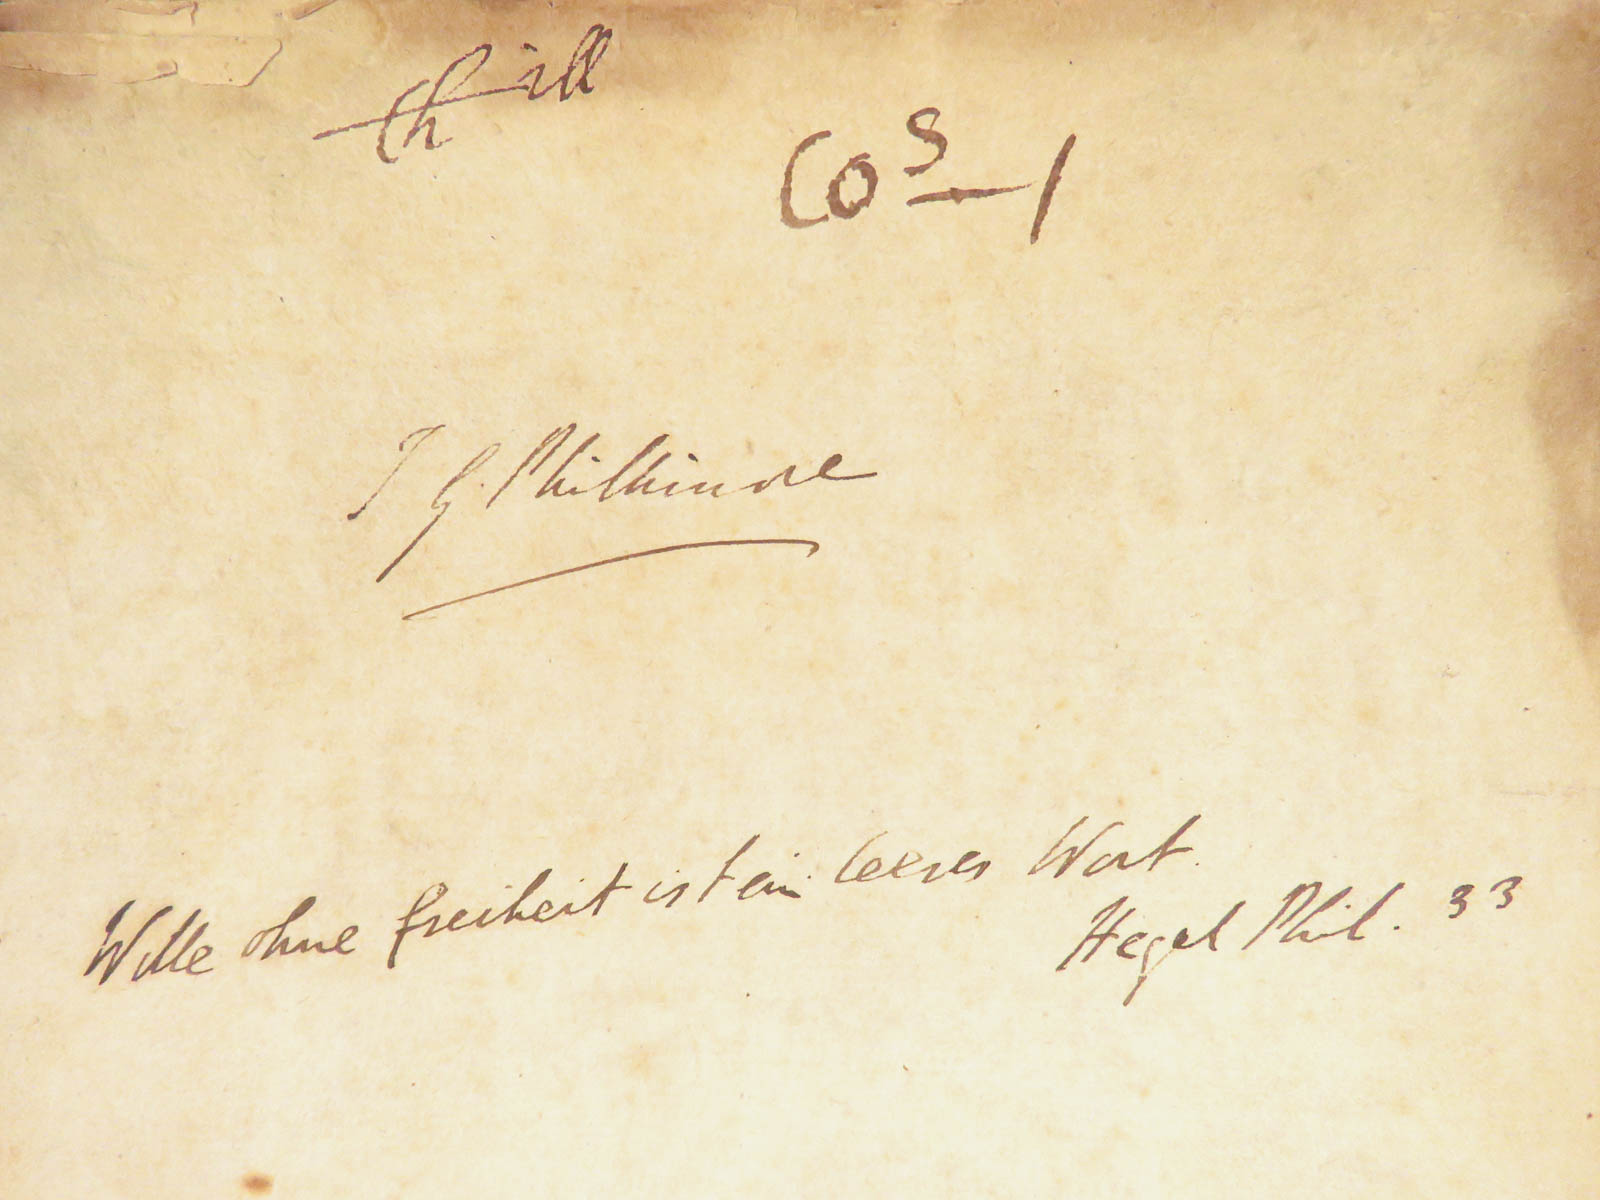 th-ill
Cos-1
J G. Phillimore
Wille ohne freiheit ist ein leeres Wort.
Hegel Phil. 33